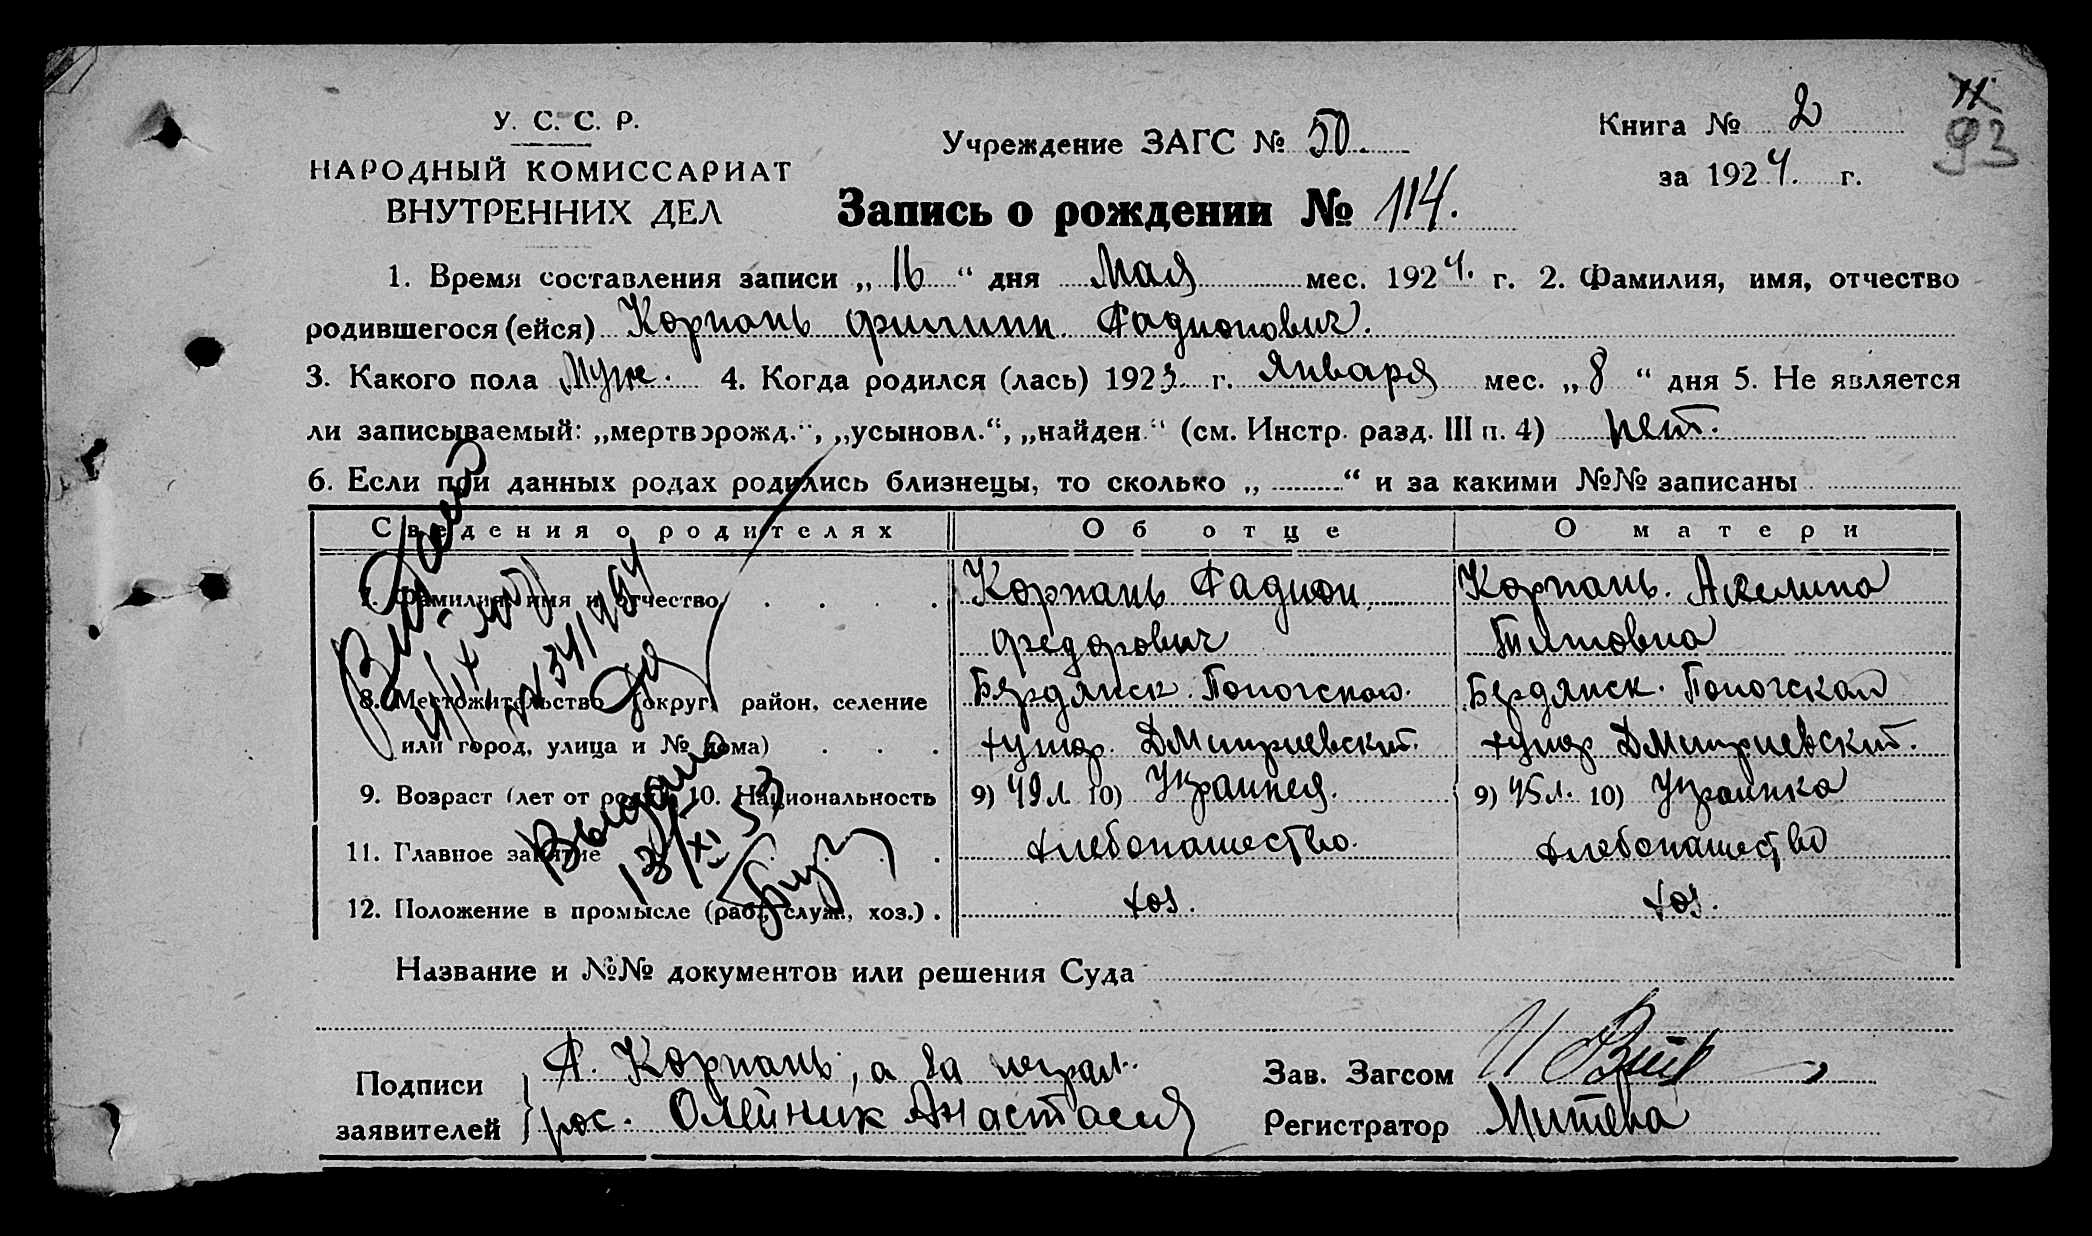 У. С. С. Р.
НАРОДНЫЙ КОМИССАРИАТ
ВНУТРЕННИХ ДЕЛ
Учреждение ЗАГС № 50.
Книга № 2
за 1924. г.
93
Запись о рождении № 114.
1. Время составления записи „ 16 “ дня Мая мес. 1924. г. 2. Фамилия, имя, отчество
родившегося (ейся) Корпань Филипп Радионович.
3. Какого пола Муж. 4. Когда родился (лась) 1923. г. Января мес. „ 8 “ дня 5. Не является
ли записываемый: „мертворожд.“, „усыновл.“, „найден.“ (см. Инстр. разд. III п. 4) нет.
6. Если при данных родах родились близнецы, то сколько „ “ и за какими №№ записаны
Сведения о родителях Об отце О матери
7. Фамилия, имя и отчество Корпань Радион Корпань. Акелина
Федорович Титовна
8. Местожительство (округ, район, селение Бердянск. Пологского. Бердянск. Пологская
или город, улица и № дома) хутор. Дмитриевский. хутор Дмитриевский.
9. Возраст (лет от роду) 10. Национальность 9) 49 л. 10) Украинец. 9) 45 л. 10) Украинка
11. Главное занятие хлебопашество. хлебопашество
12. Положение в промысле (раб., служ., хоз.) . хоз. хоз.
Выдано
13/XI 53
Название и №№ документов или решения Суда
Подписи
заявителей
Р. Корпань, а за неграм.
рос. Олейник Анастасия
Зав. Загсом
Регистратор Митева